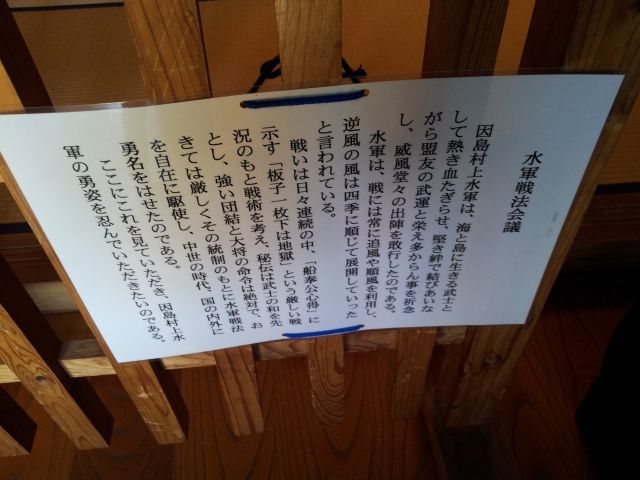 水軍戦法会議
因島村上水軍は、海と島に生きる武士と
して熱き血たぎらせ、堅き絆で結びあいな
がら盟友の武運と栄え多からん事を祈念
し、威風堂々の出陣を敢行したのである。
水軍は、戦には常に追風や順風を利用し、
逆風の風は四季に順じて展開していった
と言われている。
戦いは日々連続の中、「船奉公心得」に
示す「板子一枚下は地獄」という厳しい戦
況のもと戦術を考え、秘伝は武士の和を先
とし、強い団結と大将の命令は絶対で、お
きては厳しくその統制のもとに水軍戦法
を自在に駆使し、中世の時代、国の内外に
勇名をはせたのである。
ここにこれを見ていただき、因島村上水
軍の勇姿を忍んでいただきたいのである。